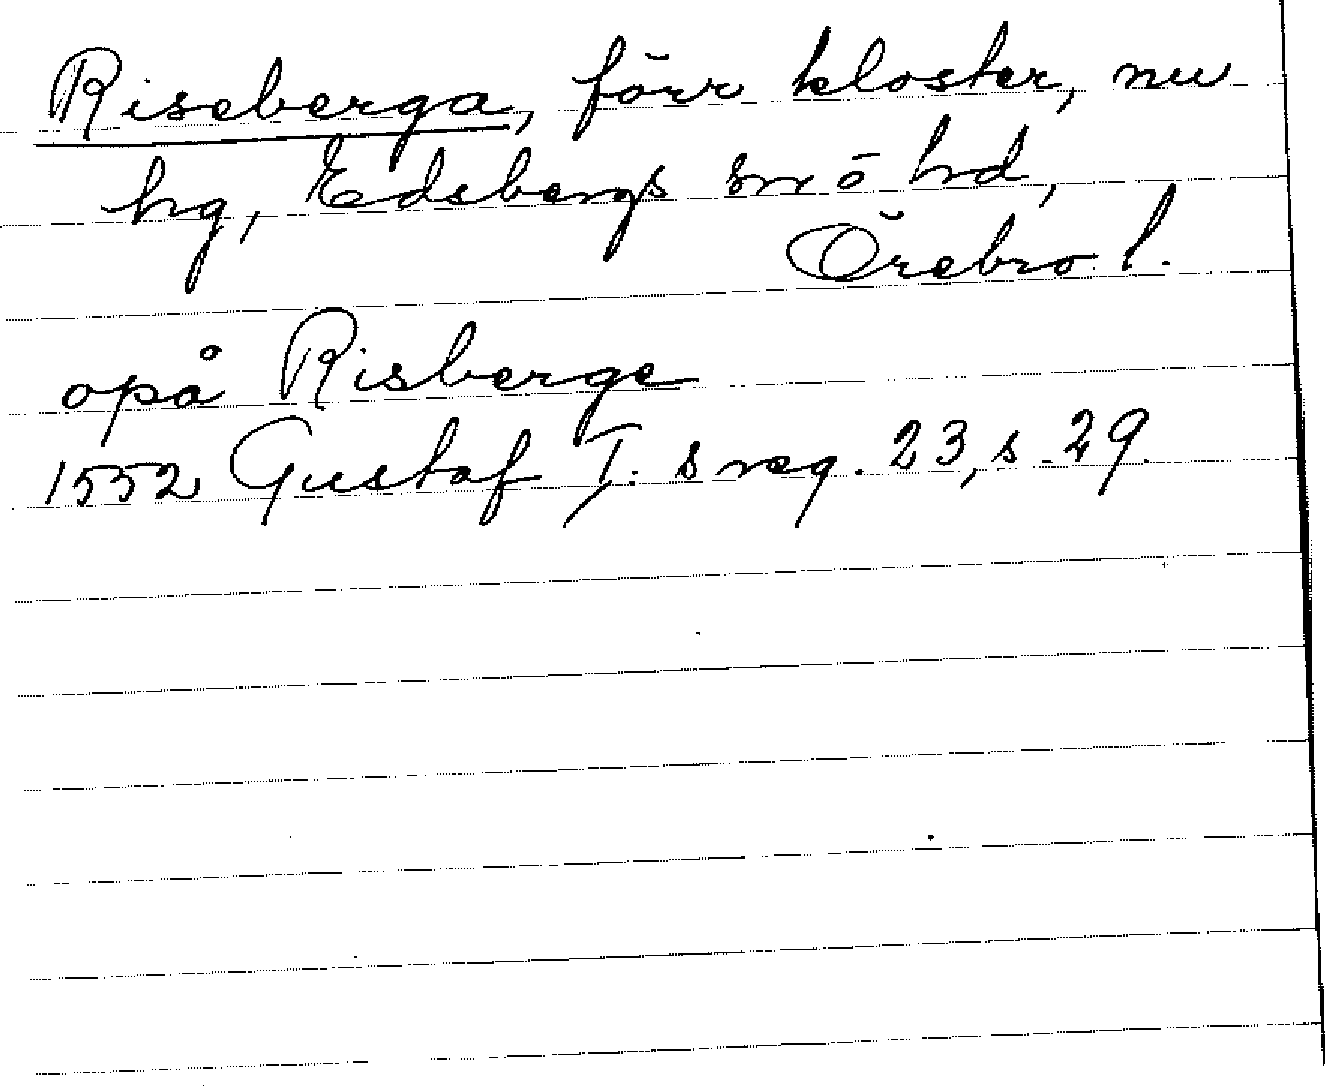 Riseberga, förr kloster, nu
hg, Edsbergs sn o hd,
Örebro l.
opå Risberge
1552 Gustaf I. s reg. 23, s. 29.